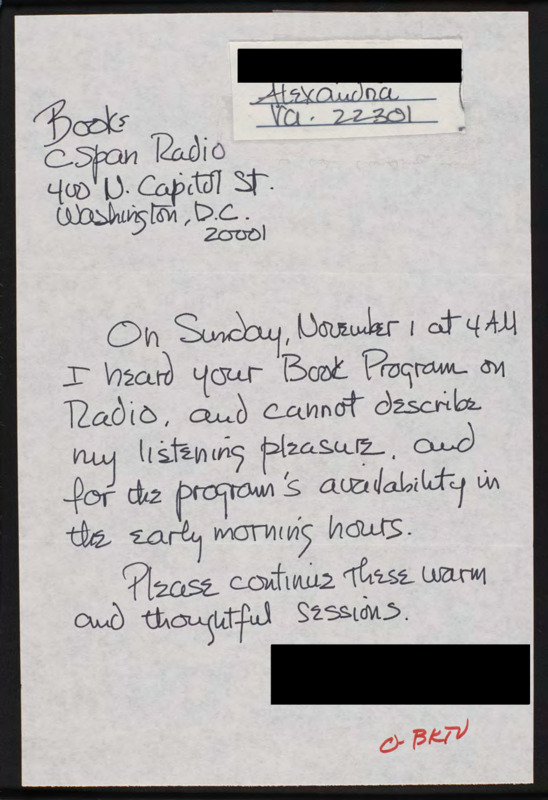 Alexandria
Va. 22301
Books
C.Span Radio
400 N. Capitol St.
Washington, D.C.
20001
On Sunday, November 1 at 4 AM
I heard your Book Program on
Radio, and cannot describe
my listening pleasure, and
for the program's availability in
the early morning hours.
Please continue these warm
and thoughtful sessions.
BKTV